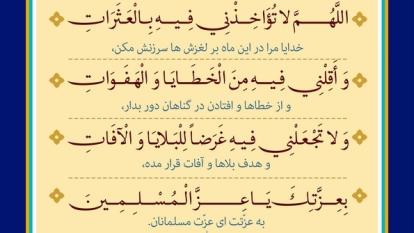 اللَّهُمَّ لا تُؤَاخِذْنِي فِيهِ بِالْعَثَرَاتِ
خدایا مرا در این ماه بر لغزش ها سرزنش مکن،
وَ أَقِلْنِي فِيهِ مِنَ الْخَطَايَا وَ الْهَفَوَاتِ
و از خطاها و افتادن در گناهان دور بدار،
وَ لا تَجْعَلْنِي فِيهِ غَرَضاً لِلْبَلايَا وَ الْآفَاتِ
و هدف بلاها و آفات قرار مده،
بِعِزَّتِكَ يَا عِزَّ الْمُسْلِمِينَ
به عزّتت ای عزّت مسلمانان.